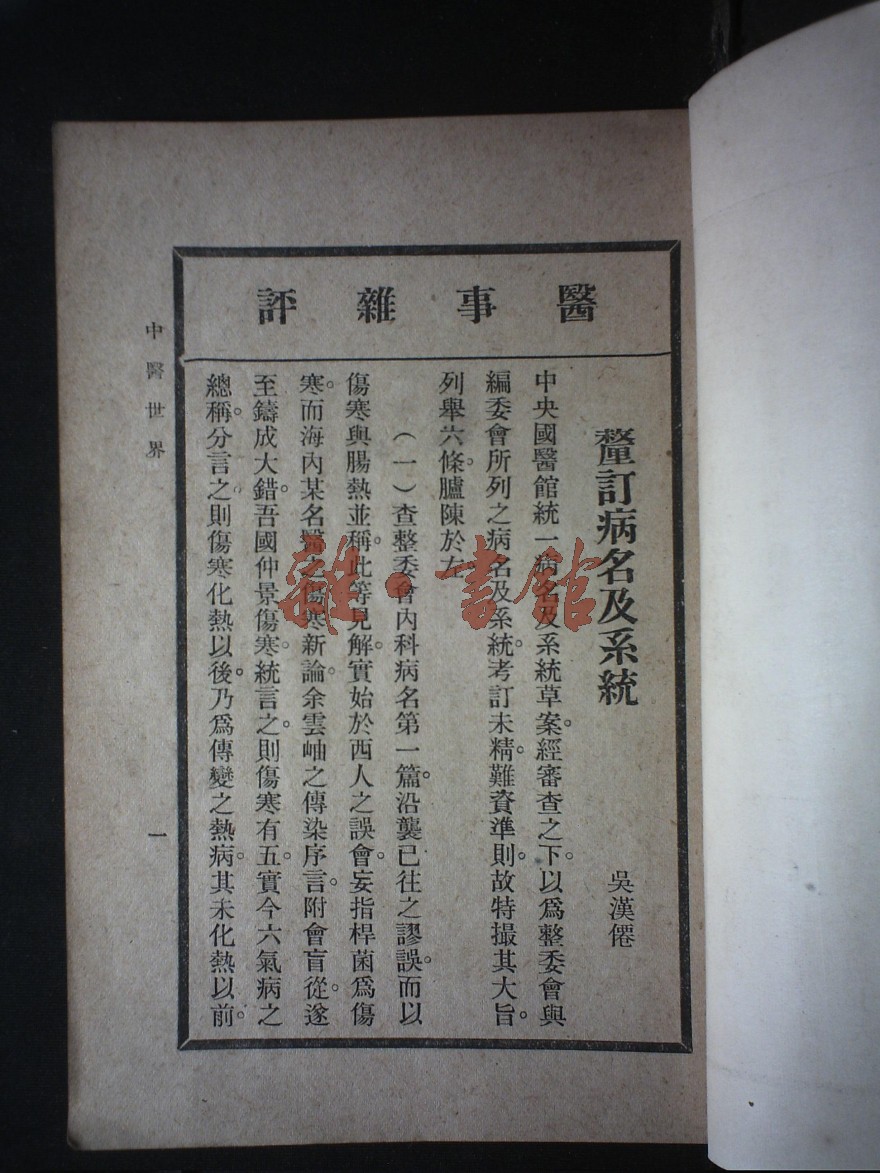 醫事雜評
釐訂病名及系統
吳漢僊
中央國醫館統一病名及系統草案。經審查之下。以爲整委會與
編委會所列之病名及系統。考訂未精。難資準則。故特撮其大旨。
列舉六條。臚陳於左。
(一)查整委會內科病名第一篇。沿襲已往之謬誤。而以
傷寒與腸熱並稱。此等見解。實始於西人之誤會。妄指桿菌爲傷
寒。而海內某名醫之傷寒新論。余雲岫之傳染序言。附會盲從。遂
至鑄成大錯。吾國仲景傷寒。統言之。則傷寒有五。實今六氣病之
總稱。分言之。則傷寒化熱以後。乃爲傳變之熱病。其未化熱以前。
中醫世界
一
雜·書館